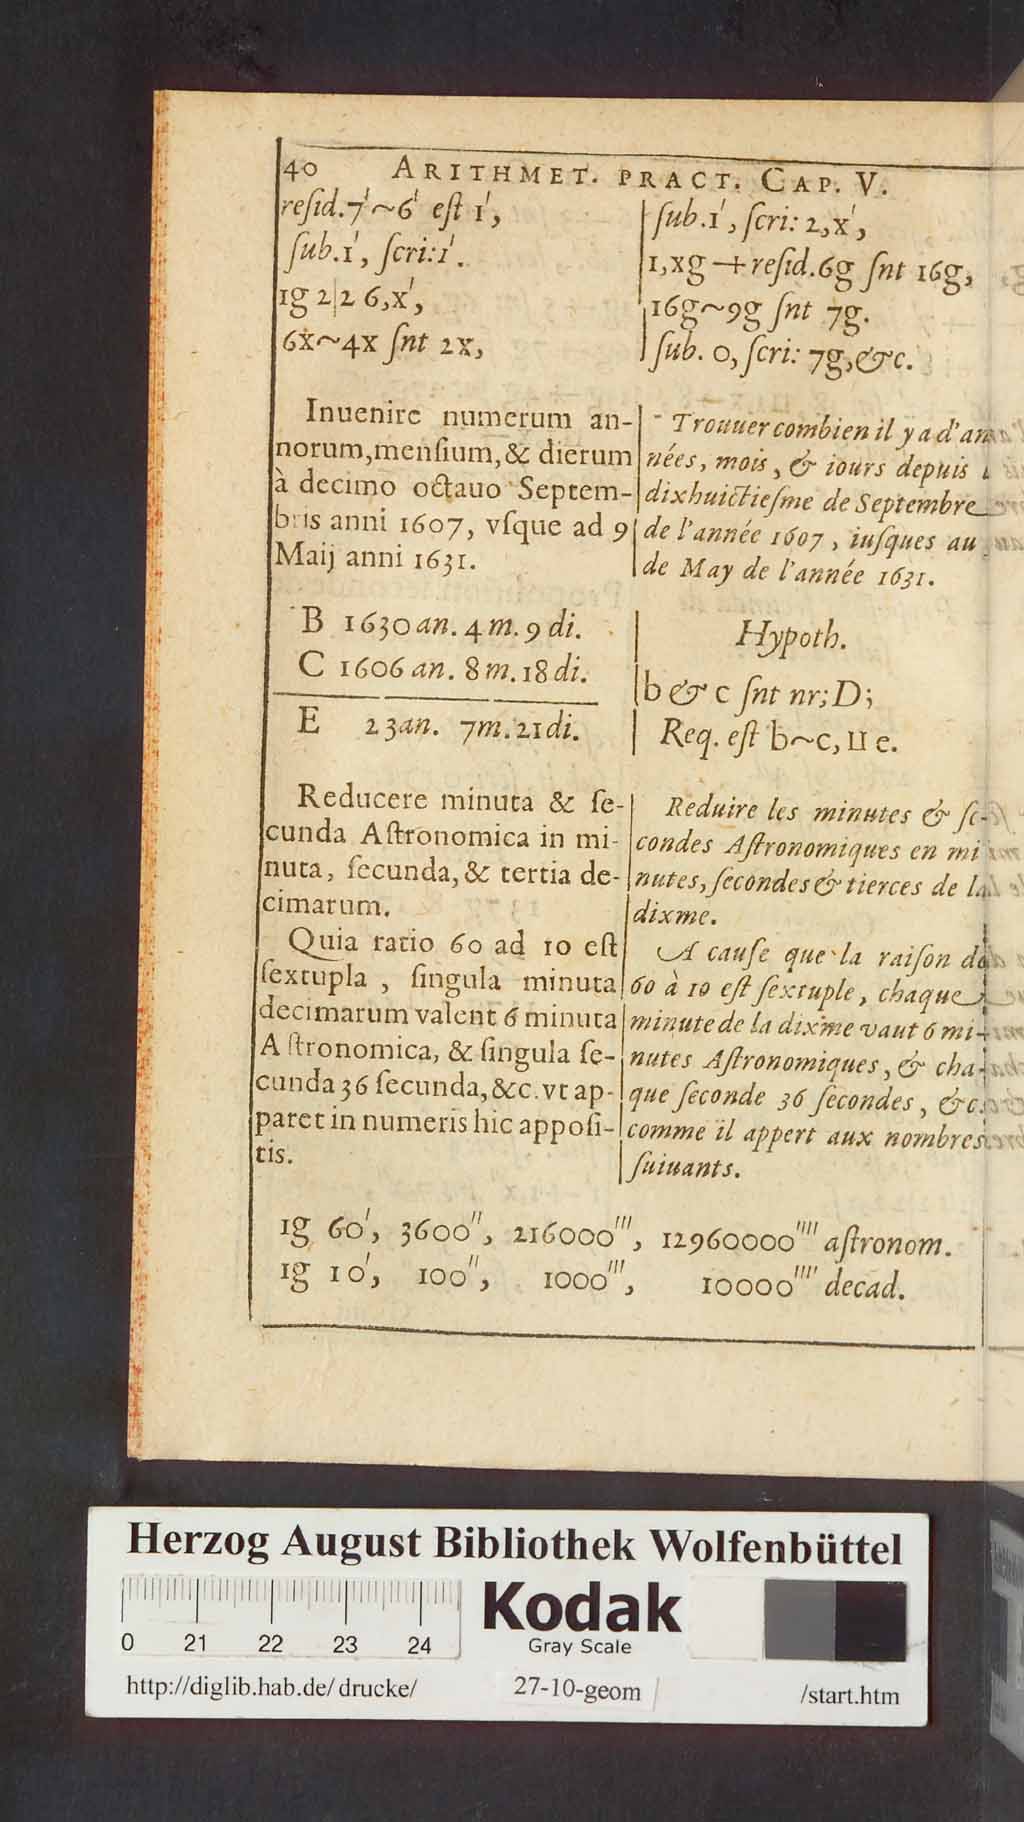 40 ARITHMET. PRACT. CAP. V.
reſid.7'~6' eſt 1',
ſub.1', ſcri:1'.
1g 2|2 6,x',
6x~4x ſnt 2x,
ſub.1', ſcri: 2,x',
1,xg + reſid.6g ſnt 16g,
16g~9g ſnt 7g.
ſub. 0, ſcri: 7g,&c.
Inuenire numerum an-
norum,menſium,& dierum
à decimo octauo Septem-
bris anni 1607, vſque ad 9
Maij anni 1631.
Trouuer combien il y a d'an
nées, mois, & iours depuis
dixhuictieſme de Septembre
de l'année 1607, iuſques au
de May de l'année 1631.
B 1630 an. 4 m. 9 di.
C 1606 an. 8 m. 18 di.
E 23 an. 7 m. 21 di.
Hypoth.
b & c ſnt nr; D;
Req. eſt b~c, II e.
Reducere minuta & ſe-
cunda Aſtronomica in mi-
nuta, ſecunda, & tertia de-
cimarum.
Quia ratio 60 ad 10 eſt
ſextupla, ſingula minuta
decimarum valent 6 minuta
Aſtronomica, & ſingula ſe-
cunda 36 ſecunda,&c. vt ap-
paret in numeris hic appoſi-
tis.
Reduire les minutes & ſe-
condes Aſtronomiques en mi
nutes, ſecondes & tierces de la
dixme.
A cauſe que la raiſon de
60 à 10 eſt ſextuple, chaque
minute de la dixme vaut 6 mi-
nutes Aſtronomiques, & cha-
que ſeconde 36 ſecondes, &c.
comme il appert aux nombres
ſuiuants.
1g 60', 3600'', 216000''', 12960000'''' aſtronom.
1g 10', 100'', 1000''', 10000'''' decad.
Herzog August Bibliothek Wolfenbüttel
0 21 22 23 24
Kodak
Gray Scale
http://diglib.hab.de/drucke/ 27-10-geom /start.htm